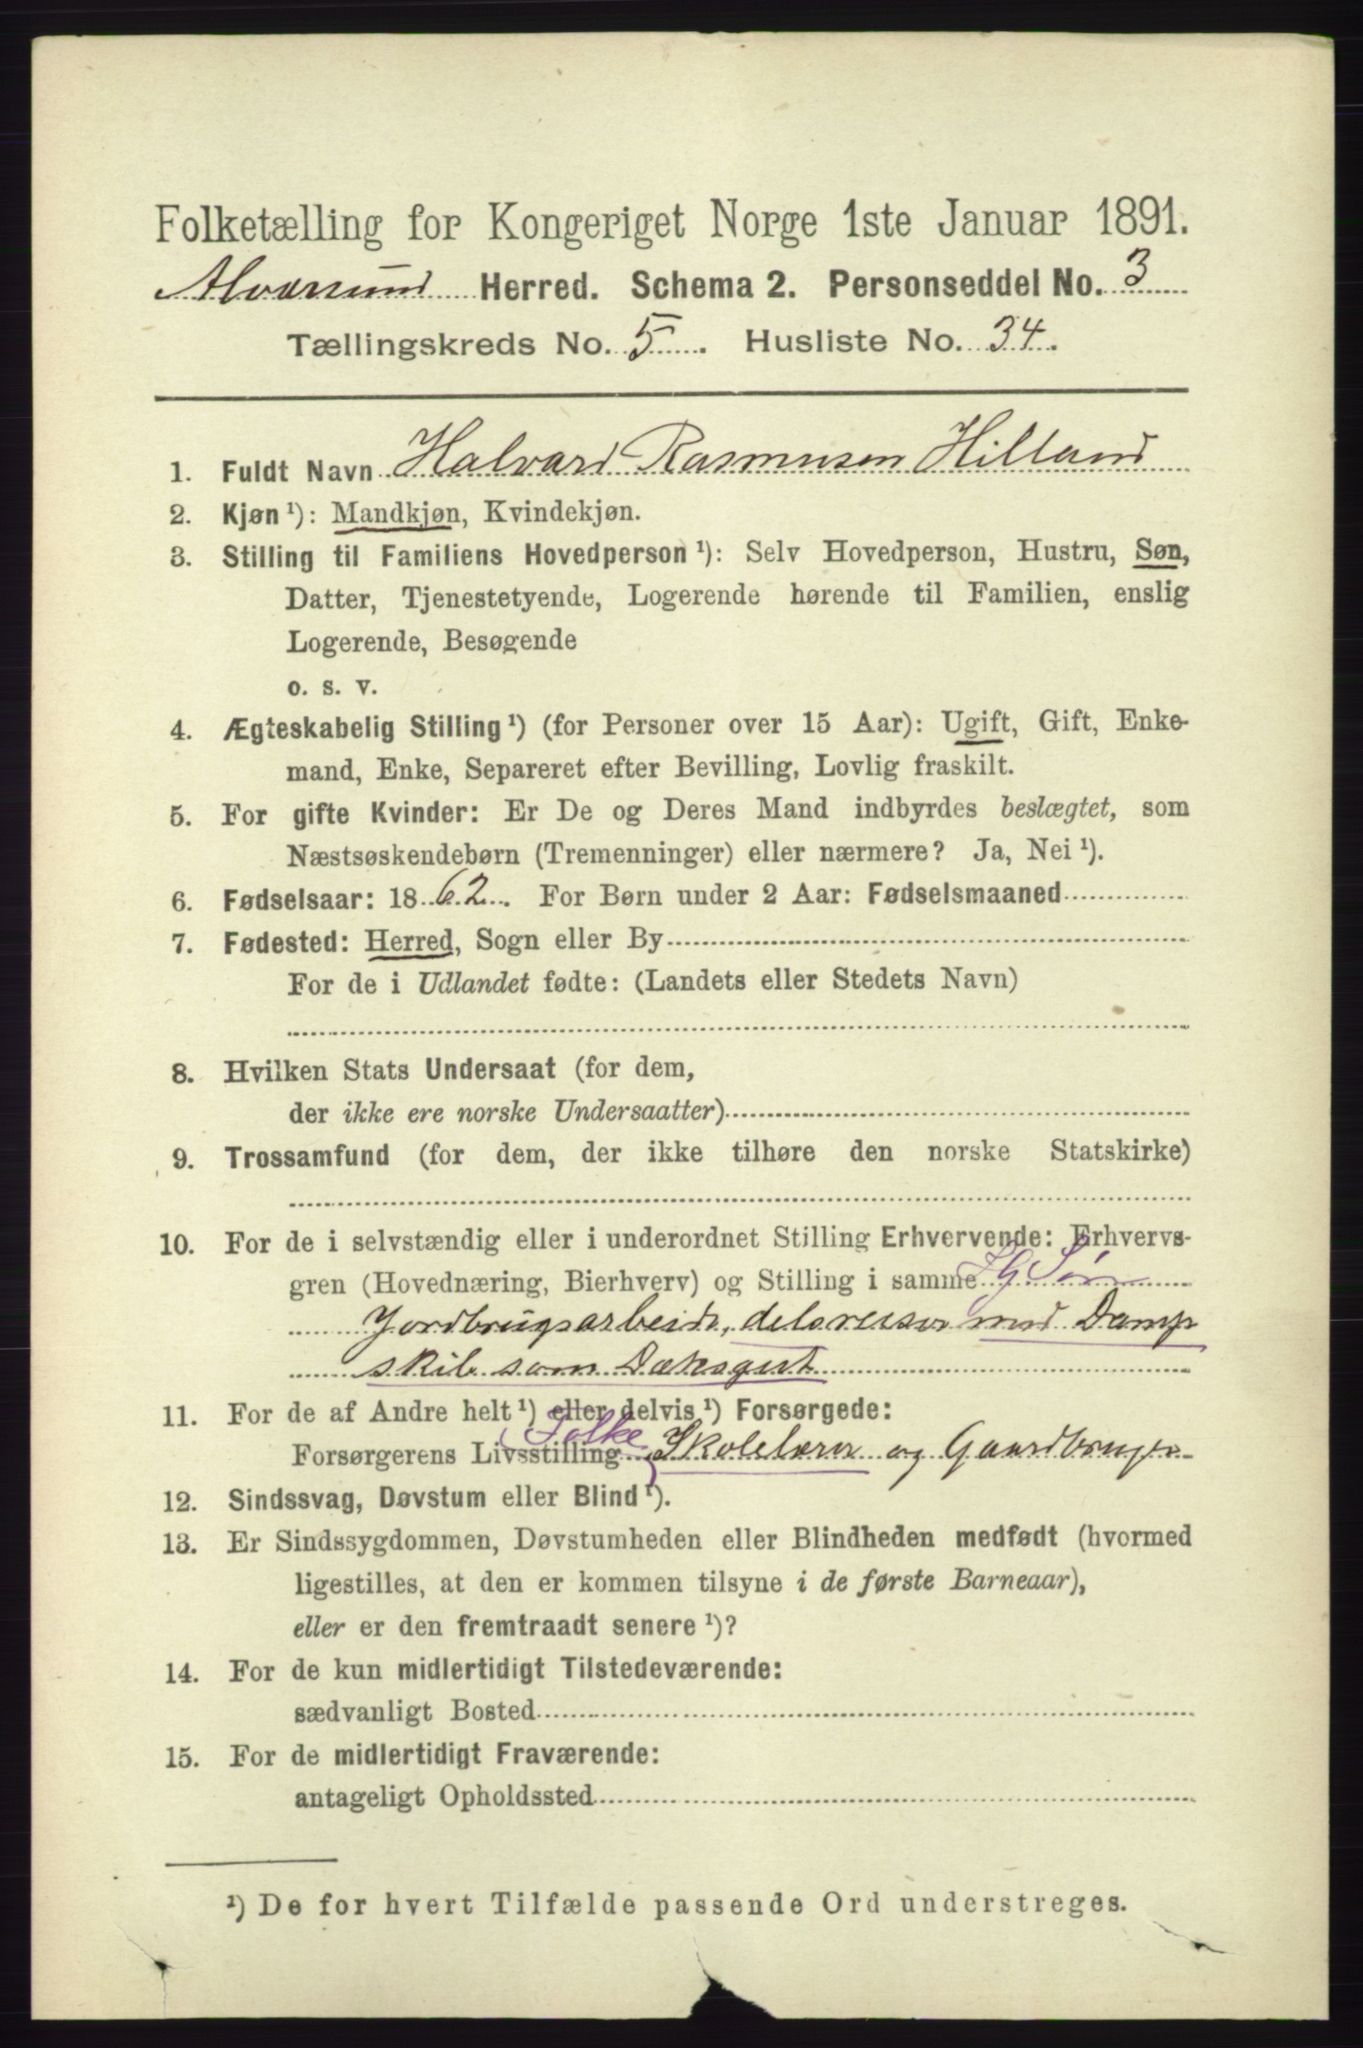 Folketælling for Kongeriget Norge 1ste Januar 1891.
Alversund Herred. Schema 2. Personseddel No. 3
Tællingskreds No. 5. Husliste No. 34.
1. Fuldt Navn Halvard Rasmusen Hilland
2. Kjøn ¹): Mandkjøn, Kvindekjøn.
3. Stilling til Familiens Hovedperson ¹): Selv Hovedperson, Hustru, Søn,
Datter, Tjenestetyende, Logerende hørende til Familien, enslig
Logerende, Besøgende
o. s. v.
4. Ægteskabelig Stilling ¹) (for Personer over 15 Aar): Ugift, Gift, Enke-
mand, Enke, Separeret efter Bevilling, Lovlig fraskilt.
5. For gifte Kvinder: Er De og Deres Mand indbyrdes beslægtet, som
Næstsøskendebørn (Tremenninger) eller nærmere? Ja, Nei ¹).
6. Fødselsaar: 1862. For Børn under 2 Aar: Fødselsmaaned
7. Fødested: Herred, Sogn eller By
For de i Udlandet fødte: (Landets eller Stedets Navn)
8. Hvilken Stats Undersaat (for dem,
der ikke ere norske Undersaatter)
9. Trossamfund (for dem, der ikke tilhøre den norske Statskirke)
10. For de i selvstændig eller i underordnet Stilling Erhvervende: Erhvervs-
gren (Hovednæring, Bierhverv) og Stilling i samme Søn
Jordbrugsarbeide, dels reiser med Damp
skib som Dæksgut
11. For de af Andre helt ¹) eller delvis ¹) Forsørgede:
Folke
Forsørgerens Livsstilling Skolelærer og Gaardbruger
12. Sindssvag, Døvstum eller Blind ¹).
13. Er Sindssygdommen, Døvstumheden eller Blindheden medfødt (hvormed
ligestilles, at den er kommen tilsyne i de første Barneaar),
eller er den fremtraadt senere ¹)?
14. For de kun midlertidigt Tilstedeværende:
sædvanligt Bosted
15. For de midlertidigt Fraværende:
antageligt Opholdssted
¹) De for hvert Tilfælde passende Ord understreges.